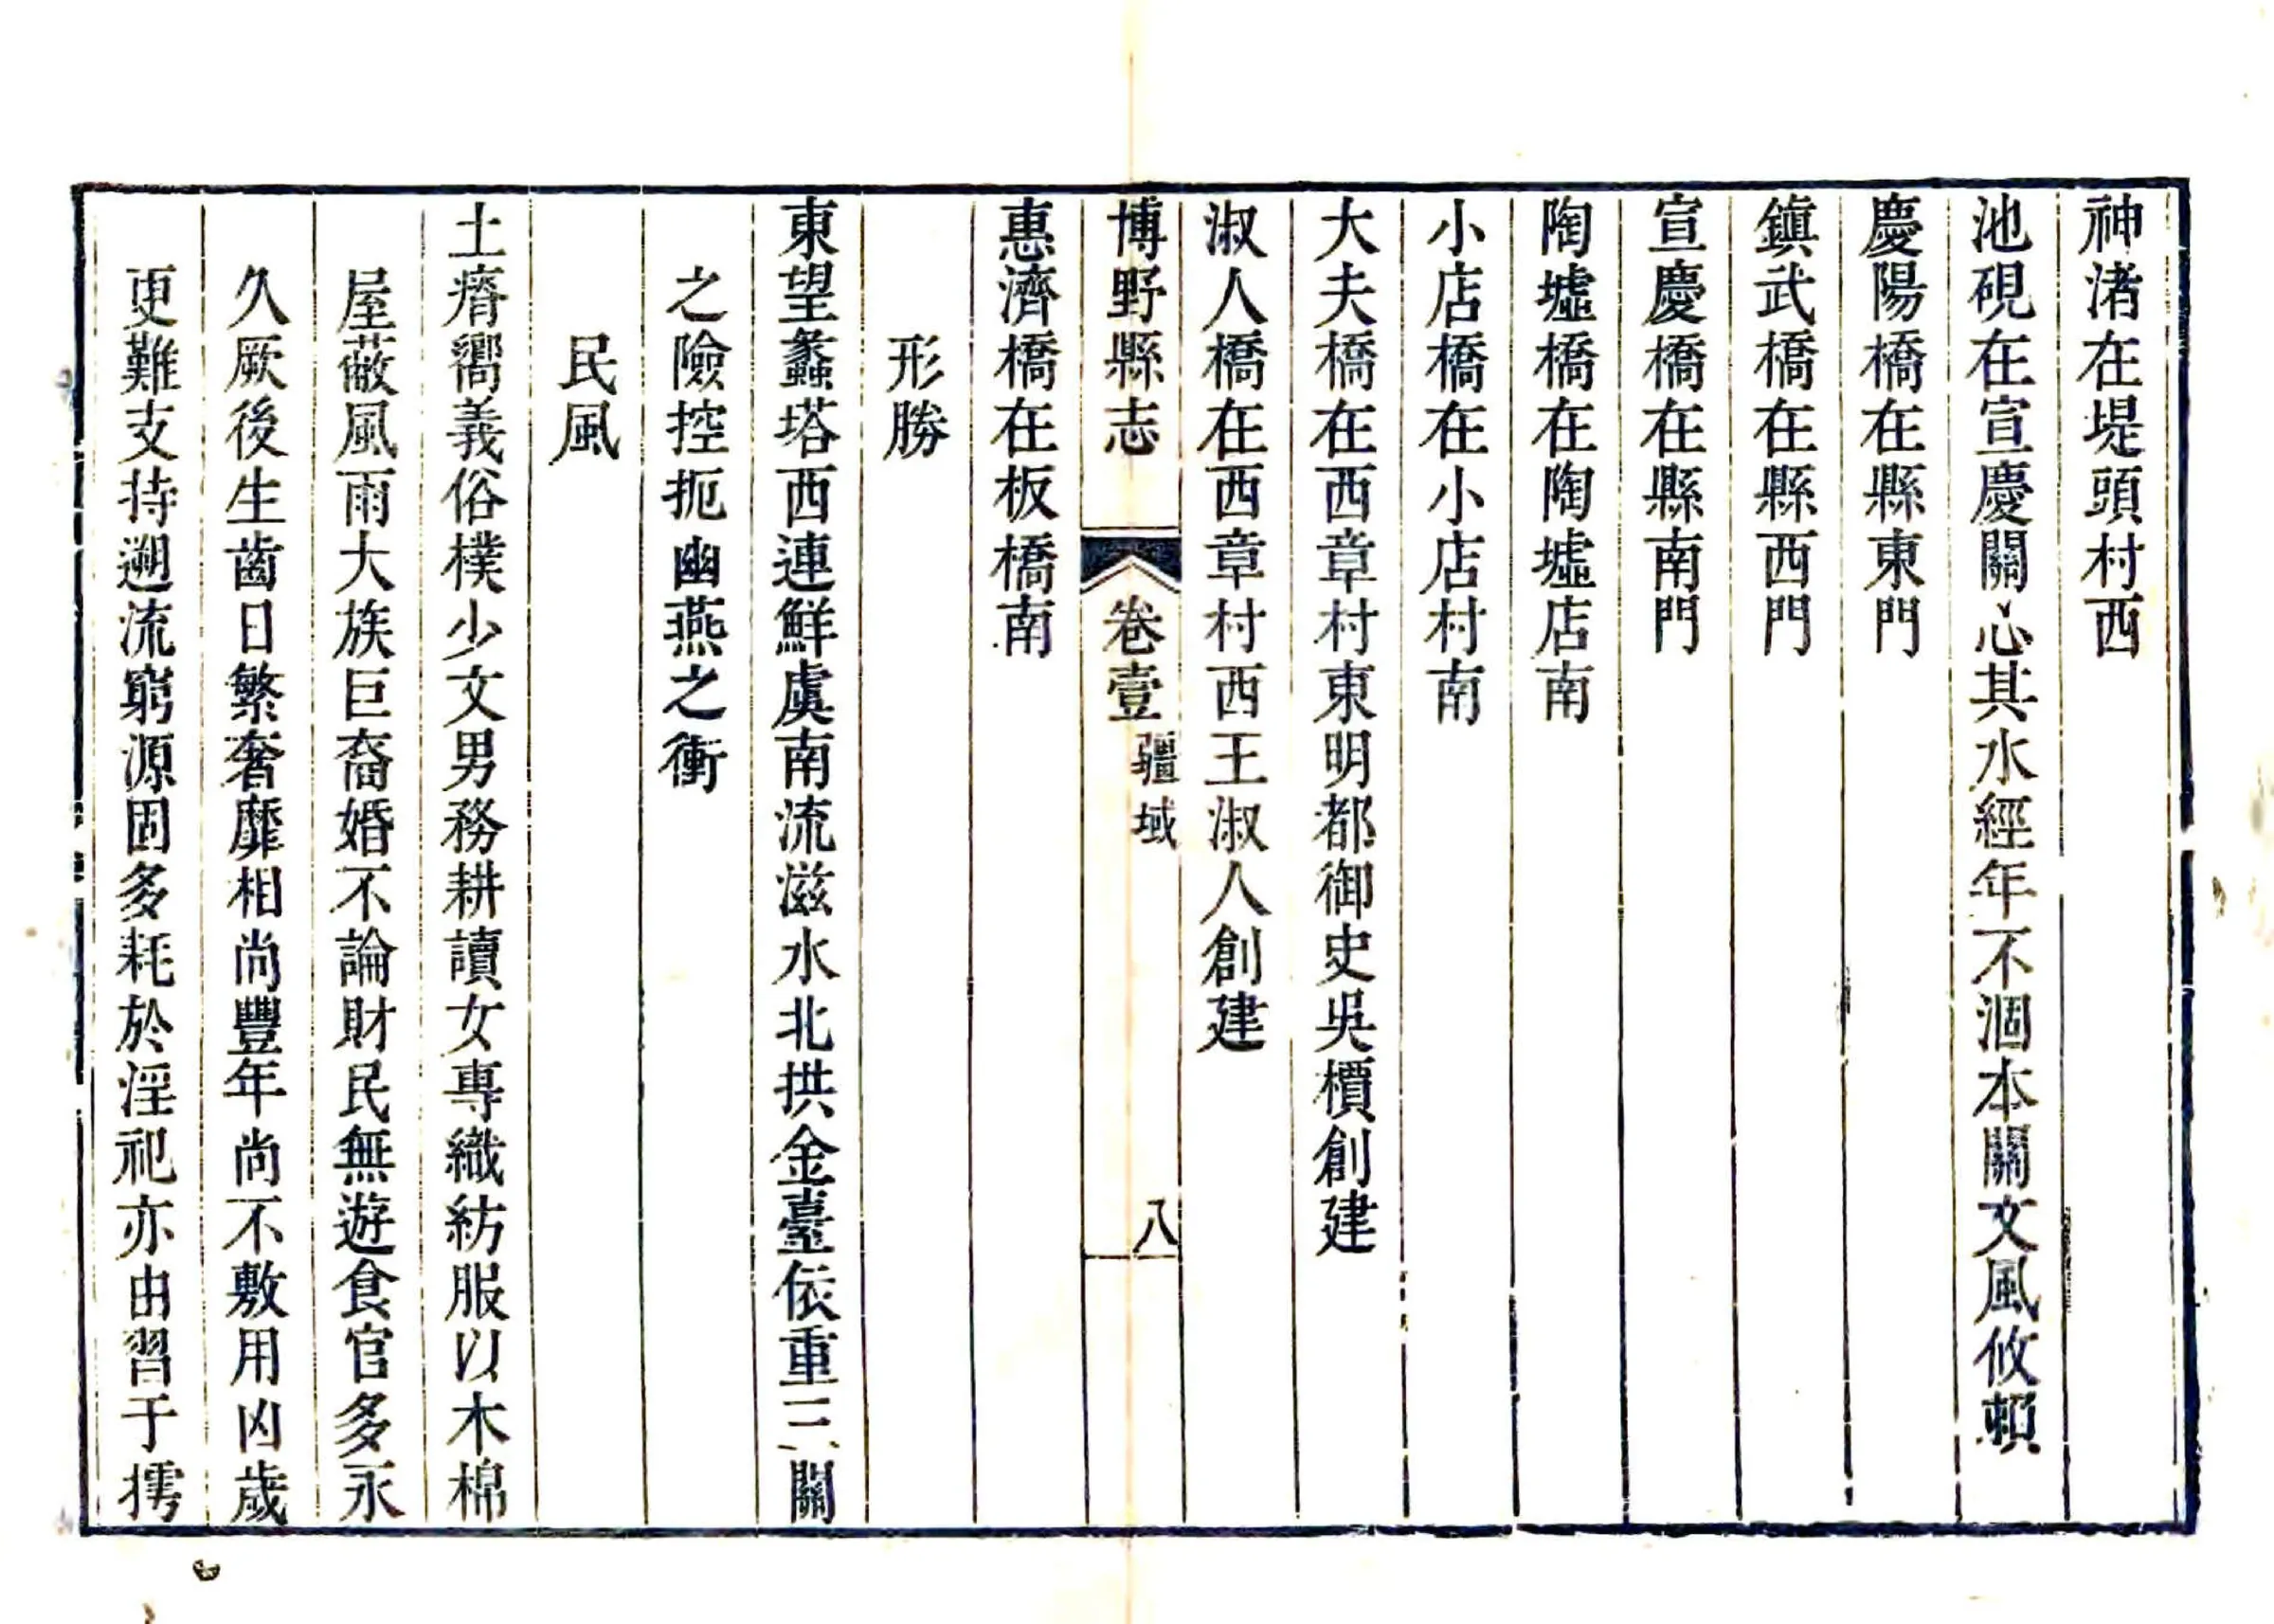 神渚在堤頭村西
池硯在宣慶關心其水經年不涸本關文風攸賴
慶陽橋在縣東門
鎮武橋在縣西門
宣慶橋在縣南門
陶墟橋在陶墟店南
小店橋在小店村南
大夫橋在西章村東明都御史吳檟創建
淑人橋在西章村西王淑人創建
博野縣志 卷壹 疆域 八
惠濟橋在板橋南
形勝
東望蠡塔西連鮮虞南流滋水北拱金臺依重三關
之險控扼幽燕之衝
民風
土瘠嚮義俗樸少文男務耕讀女專織紡服以木棉
屋蔽風雨大族巨裔婚不論財民無遊食官多永
久厥後生齒日繁奢靡相尚豐年尚不敷用凶歲
更難支持遡流窮源固多耗於淫祀亦由習于摴